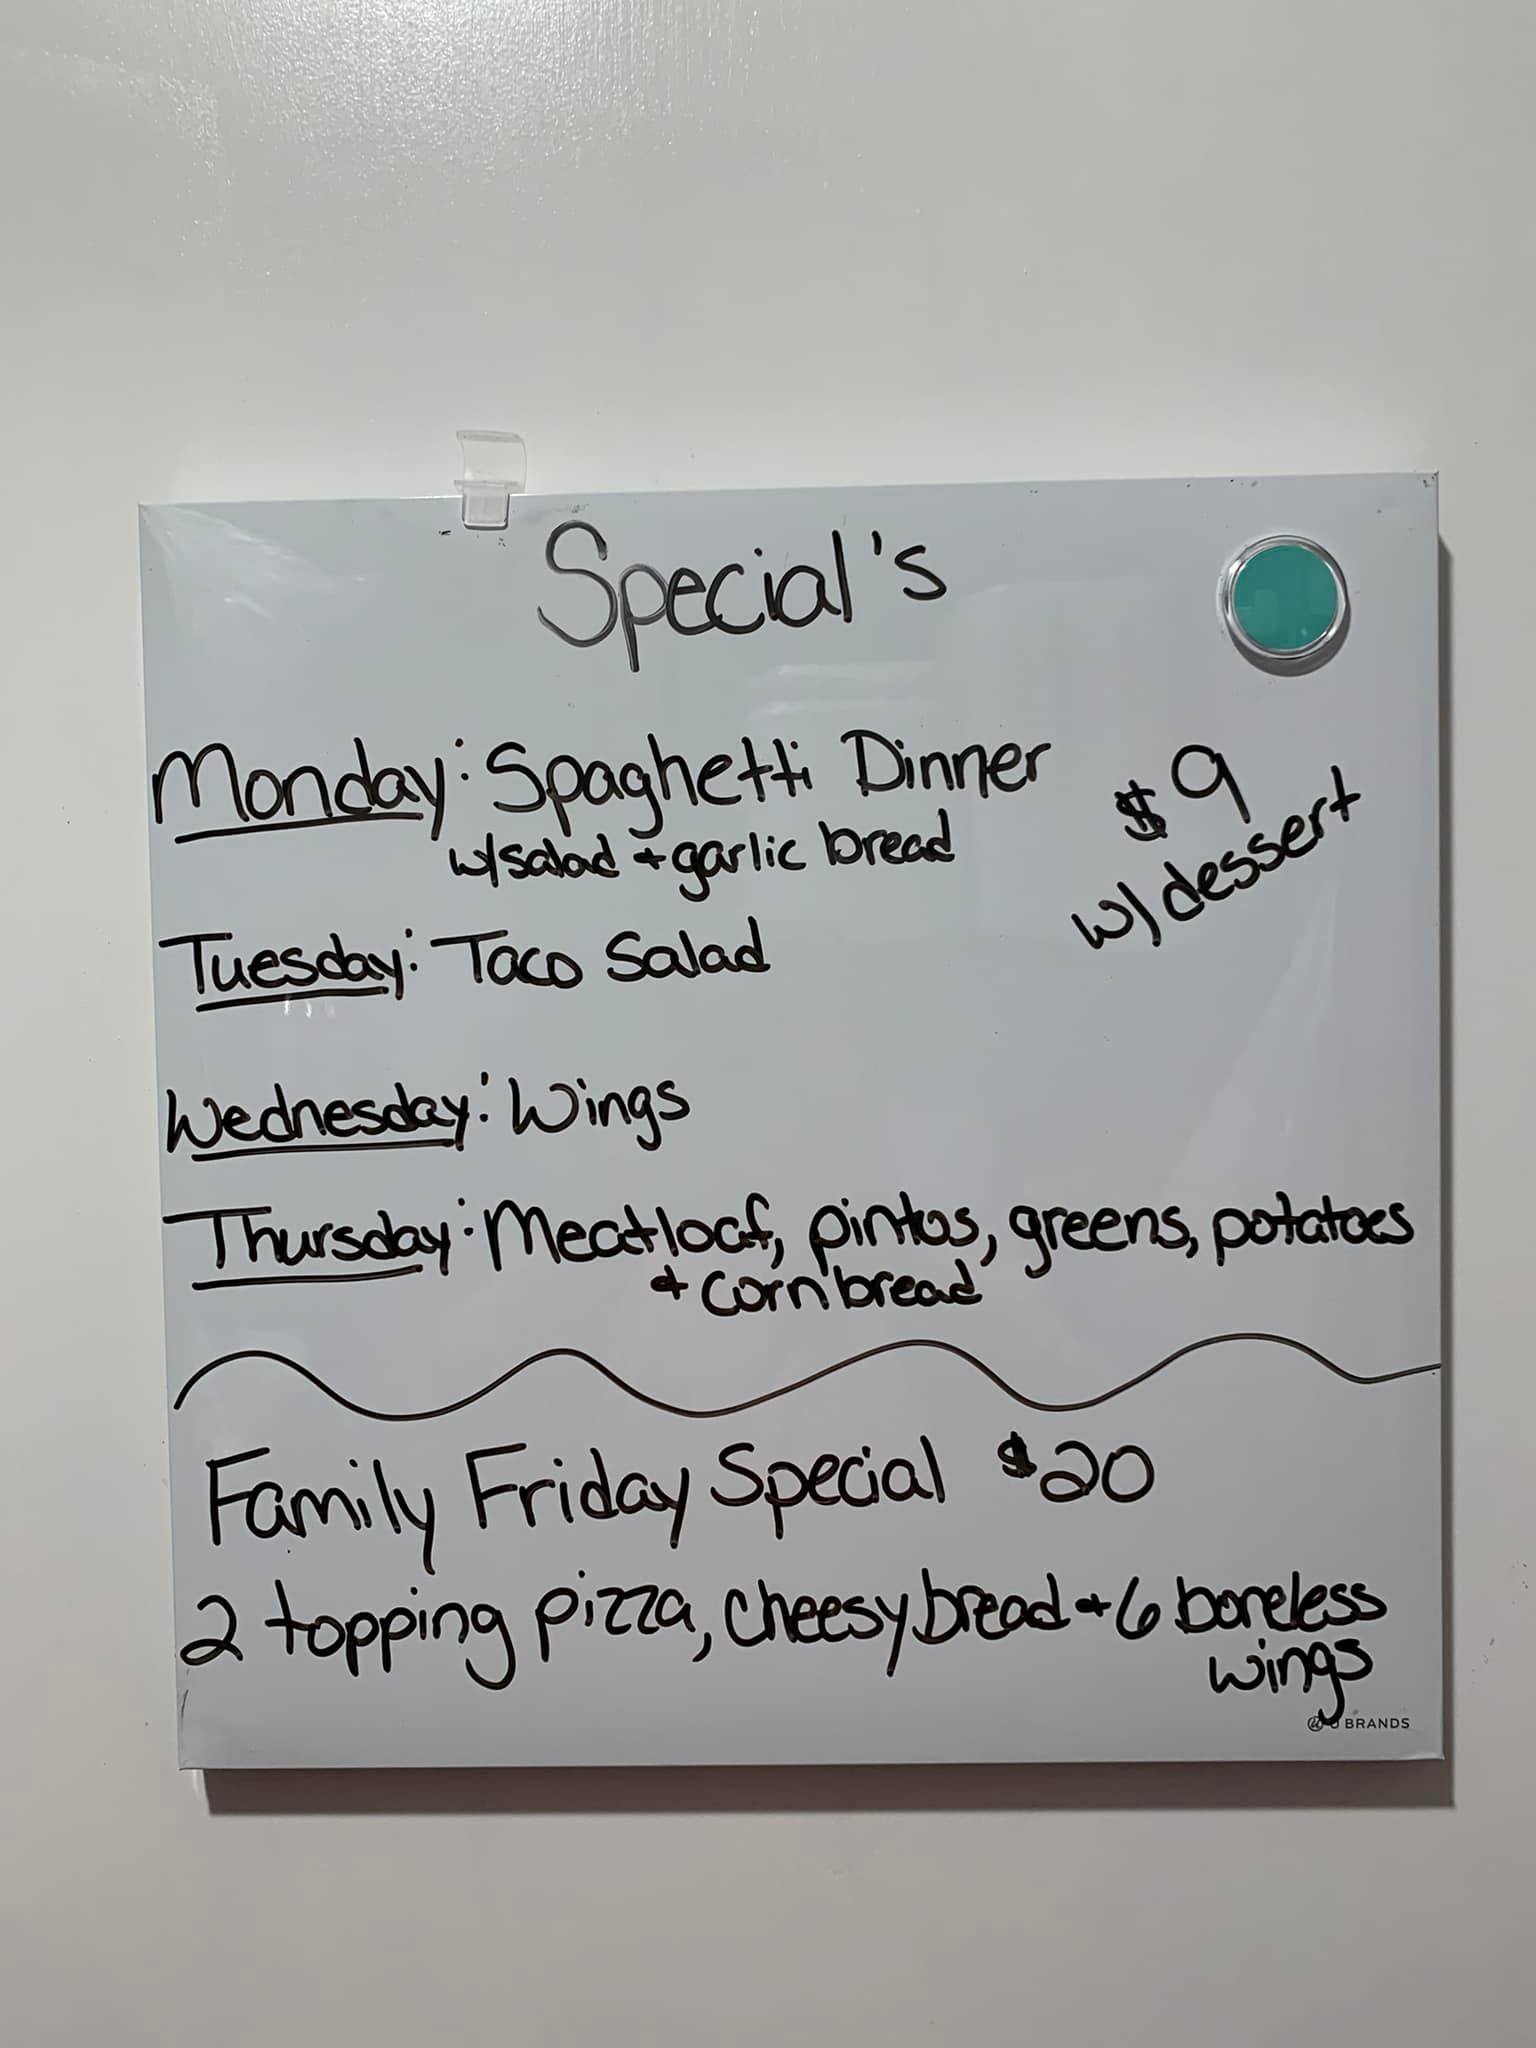 Special's
Monday: Spaghetti Dinner
w/salad + garlic bread
$9
w/dessert
Tuesday: Taco Salad
Wednesday: Wings
Thursday: Meatloaf, pintos, greens, potatoes
+ cornbread
Family Friday Special $20
2 topping pizza, cheesy bread + 6 boneless
wings
U BRANDS